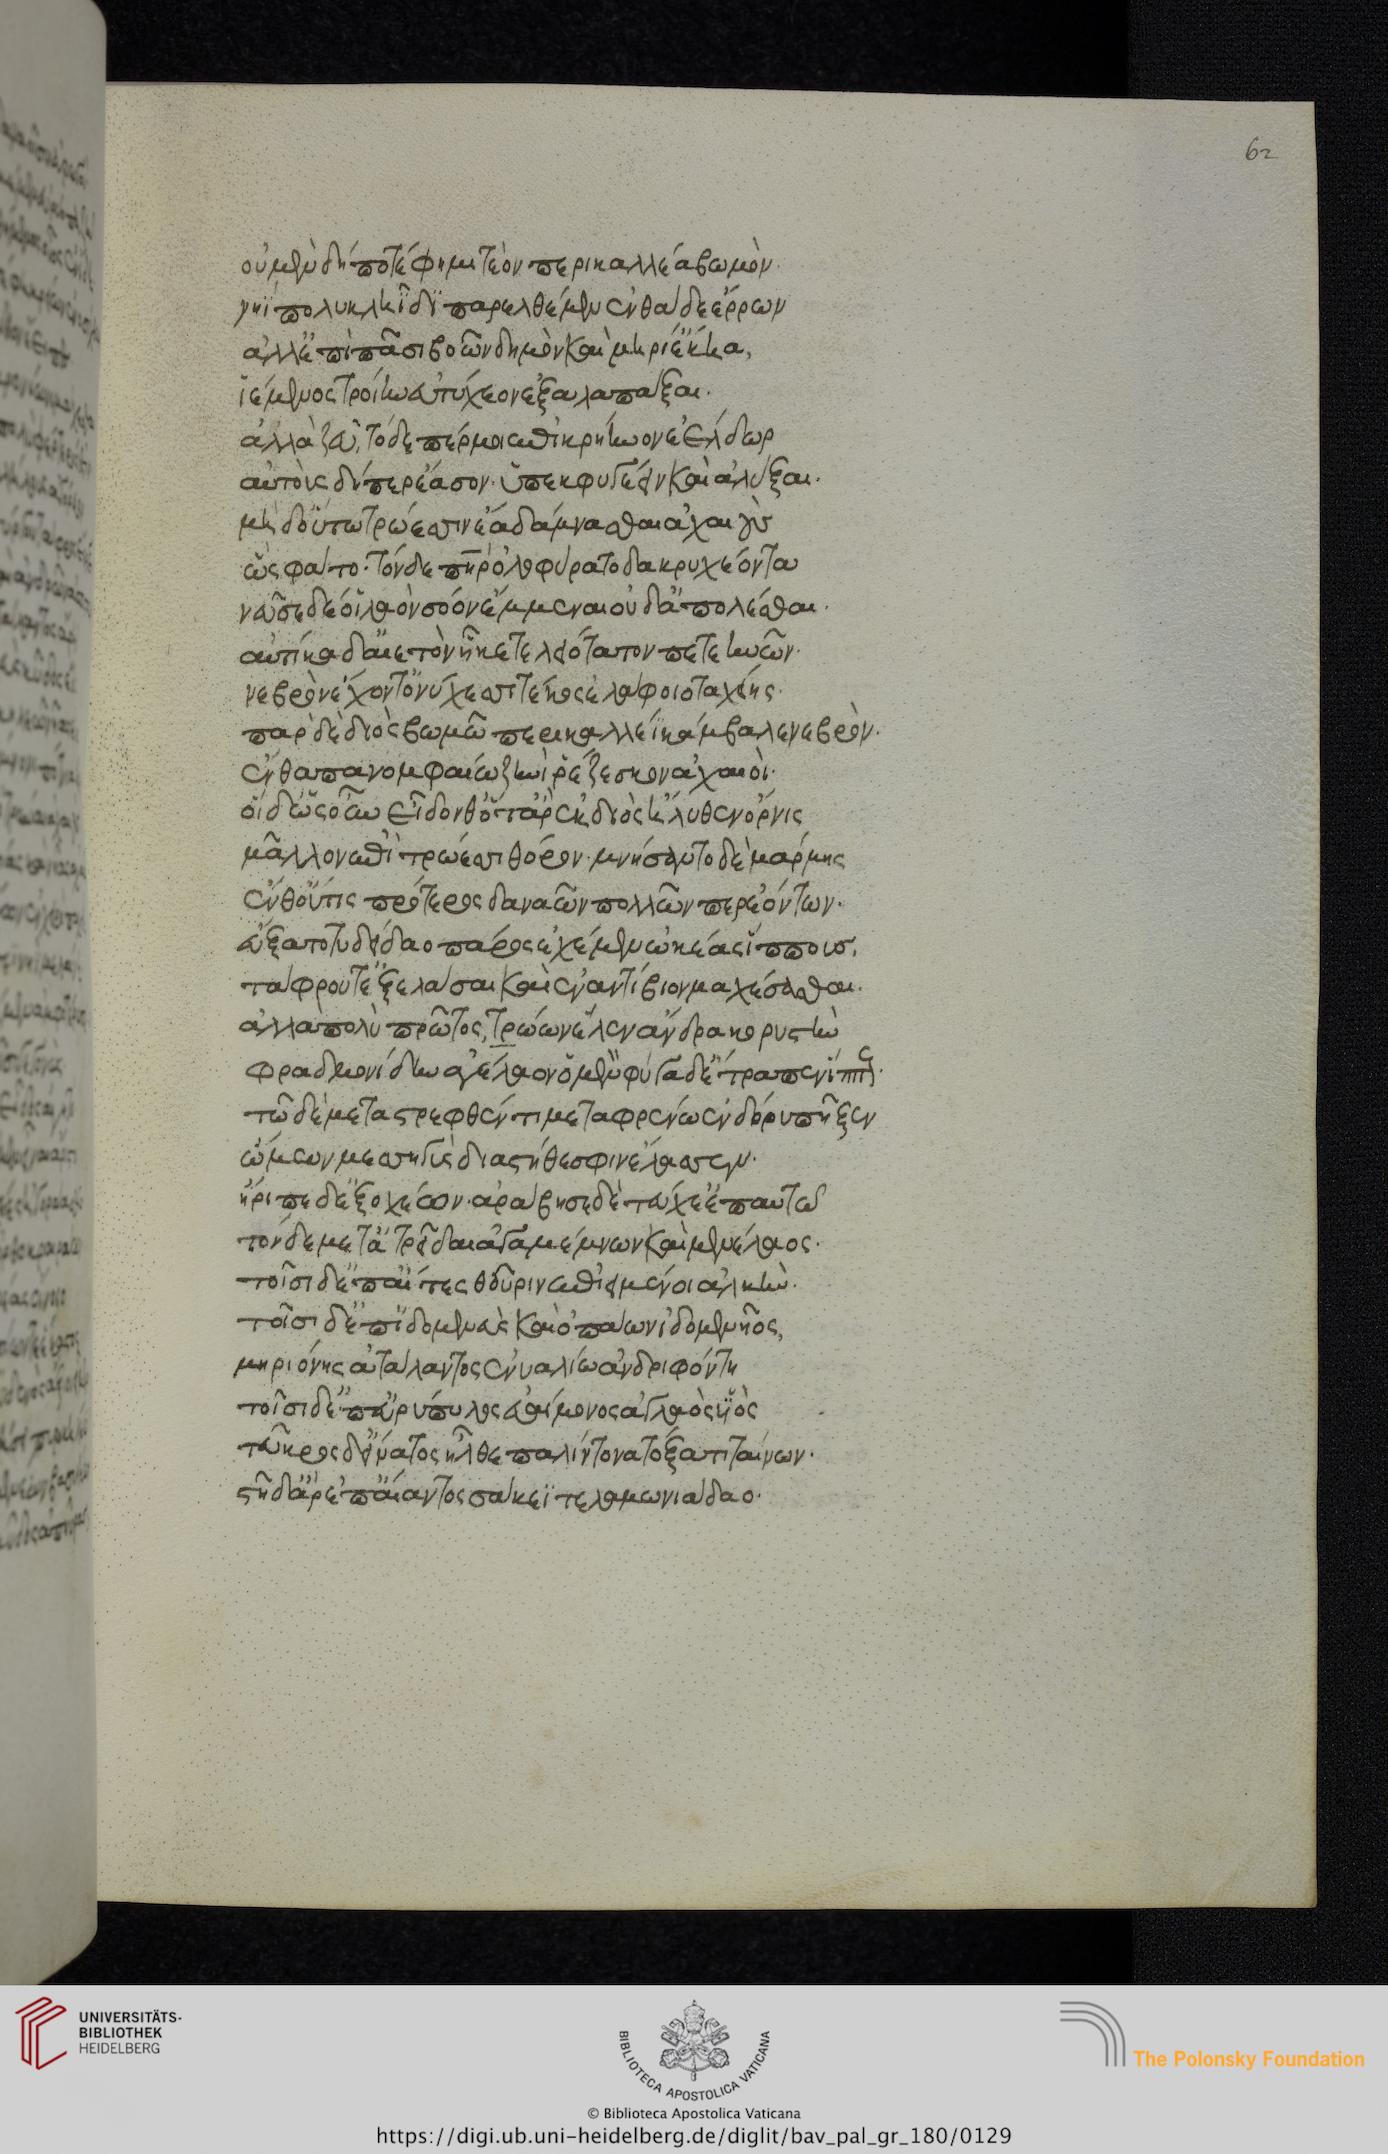 62
οὐ μὲν δή ποτέ φημι τεὸν περικαλλέα βωμὸν.
νηῒ πολυκληῗδϊ παρελθέμεν ἐνθάδε ἔρρων
ἀλλ' ἐπὶ πᾶσι βοῶν δημὸν καὶ μηρί' ἔκηα,
ἱέμενος τροίην εὐτείχεον ἐξαλαπάξαι.
ἀλλὰ ζεῦ, τόδε πέρ μοι ἐπικρήηνον ἐέλδωρ
αὐτοὺς δή περ ἔασον. ὑπεκφυγέειν καὶ ἀλύξαι.
μὴ δ' οὕτω τρώεσσιν ἔα δάμνασθαι ἀχαιοὺς
ὣς φάτο. τόνδε πατὴρ ὀλοφύρατο δακρυχέοντα
νεῦσε δέ οἱ λαὸν σόον ἔμμεναι οὐδ' ἀπολέσθαι.
αὐτίκα δ' αἰετὸν ἧκε τελειότατον πετεηνῶν.
νεβρὸν ἔχοντ' ὀνύχεσσι τέκος ἐλάφοιο ταχείης.
παρ δὲ διὸς βωμῶ περικαλλέϊ κάμβαλε νεβρὸν.
ἔνθα πανομφαίω ζηνὶ ῥέζεσκον ἀχαιοὶ.
οἱ δ' ὡς οὖν εἶδον θ' ὅτ' ἄρ' ἐκ διὸς ἤλυθεν ὄρνις
μᾶλλον ἐπὶ τρώεσσι θόρον. μνήσαντο δὲ χάρμης
ἔνθ' οὔτις πρότερος δαναῶν πολλῶν περ ἐόντων.
εὔξατο τυδείδαο πάρος ἐχέμεν ὠκέας ἵππους,
τάφρου τ' ἐξελάσαι καὶ ἐναντίβιον μαχέσασθαι.
ἀλλὰ πολὺ πρῶτος, τρώων ἕλεν ἄνδρα κορυστὴν
φραδμονίδην ἀγέλαον ὁ μὲν φύγαδ' ἔτραπεν ἵππους.
τῶ δὲ μεταστρεφθέντι μεταφρένω ἐν δόρυ πῆξεν
ὤμων μεσσηγὺς διὰ στήθεσφιν ἔλασσεν.
ἤριπε δ' ἐξ ὀχέων. ἀράβησε δὲ τεύχε' ἐπ' αυτῶ
τόνδε μετ' ἀτρεῖδαι ἀγαμέμνων καὶ μενέλαος.
τοῖσι δ' ἐπ' αἴαντες θοῦριν ἐπιειμένοι ἀλκὴν.
τοῖσι δ' ἐπ' ἰδομενεὺς καὶ ὀπάων ἰδομενῆος,
μηριόνης ἀτάλαντος ἐνυαλίω ἀνδριφόντη
τοῖσι δ' ἐπ' εὐρύπυλος εὐαίμονος ἀγλαὸς υἱὸς
τεῦκρος δ' εἴνατος ἦλθε παλίντονα τόξα τιταίνων.
στῆ δ' ἄρ' ἐπ' αἴαντος σάκεϊ τελαμωνιάδαο.
UNIVERSITÄTS-
BIBLIOTHEK
HEIDELBERG
BIBLIOTECA APOSTOLICA VATICANA
The Polonsky Foundation
© Biblioteca Apostolica Vaticana
https://digi.ub.uni-heidelberg.de/diglit/bav_pal_gr_180/0129